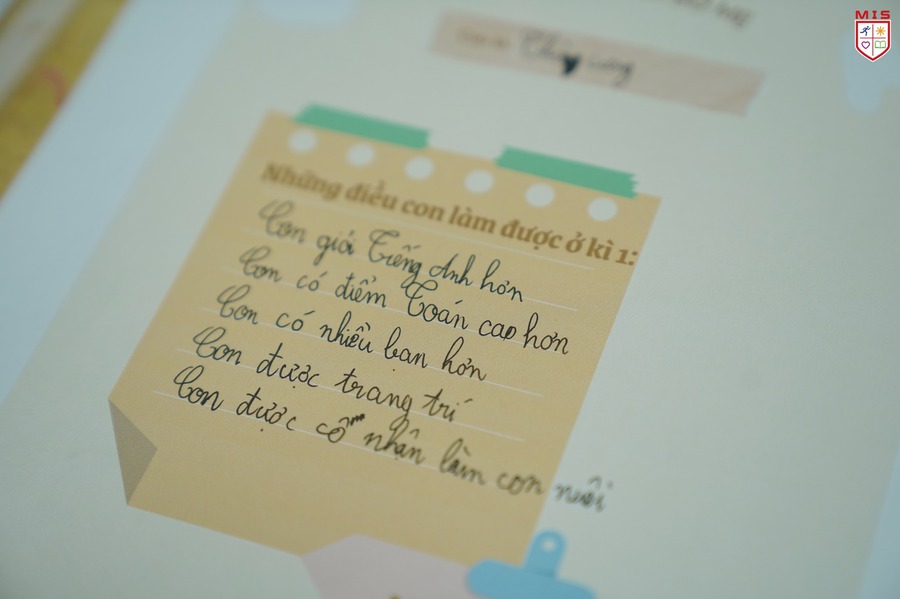 MIS
Những điều con làm được ở kì 1:
Con giỏi Tiếng Anh hơn
Con có điểm Toán cao hơn
Con có nhiều bạn hơn
Con được trang trí
Con được cô nhận làm con nuôi